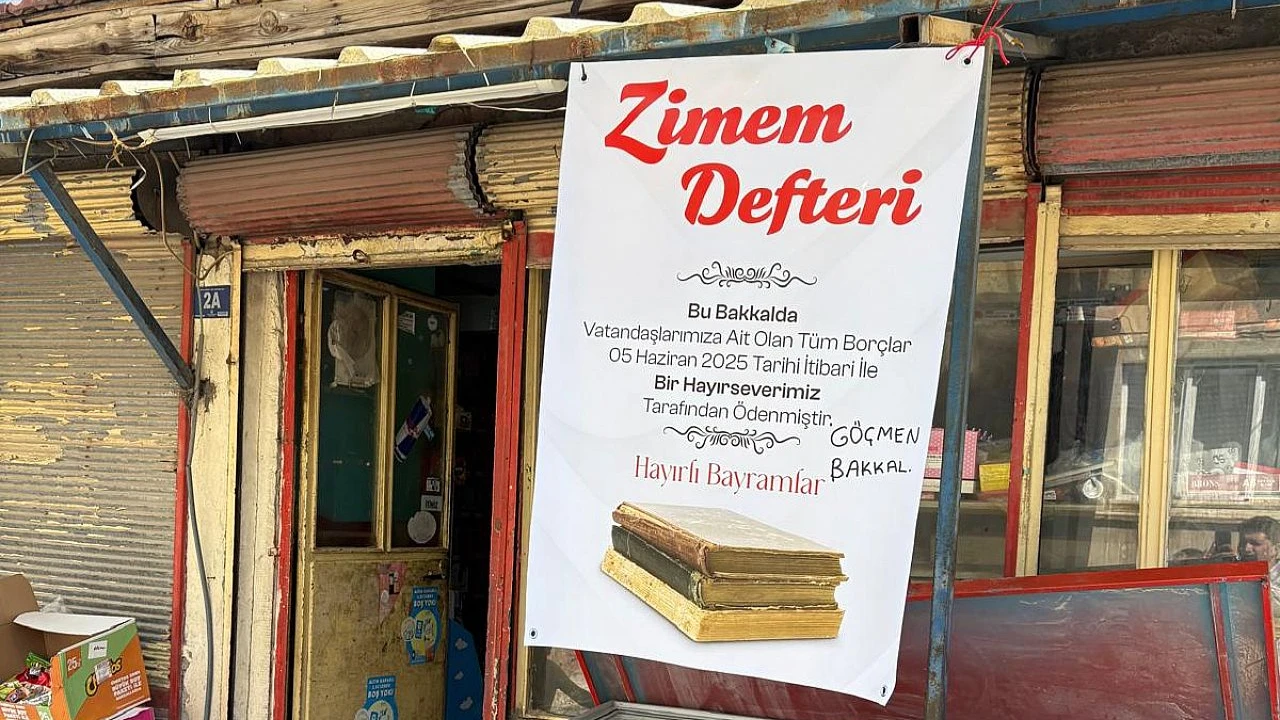 Zimem
Defteri
Bu Bakkalda
Vatandaşlarımıza Ait Olan Tüm Borçlar
05 Haziran 2025 Tarihi İtibari İle
Bir Hayırseverimiz
Tarafından Ödenmiştir.
GÖÇMEN
BAKKAL.
Hayırlı Bayramlar
2A
BOŞ YOK!
BOŞ YOK!